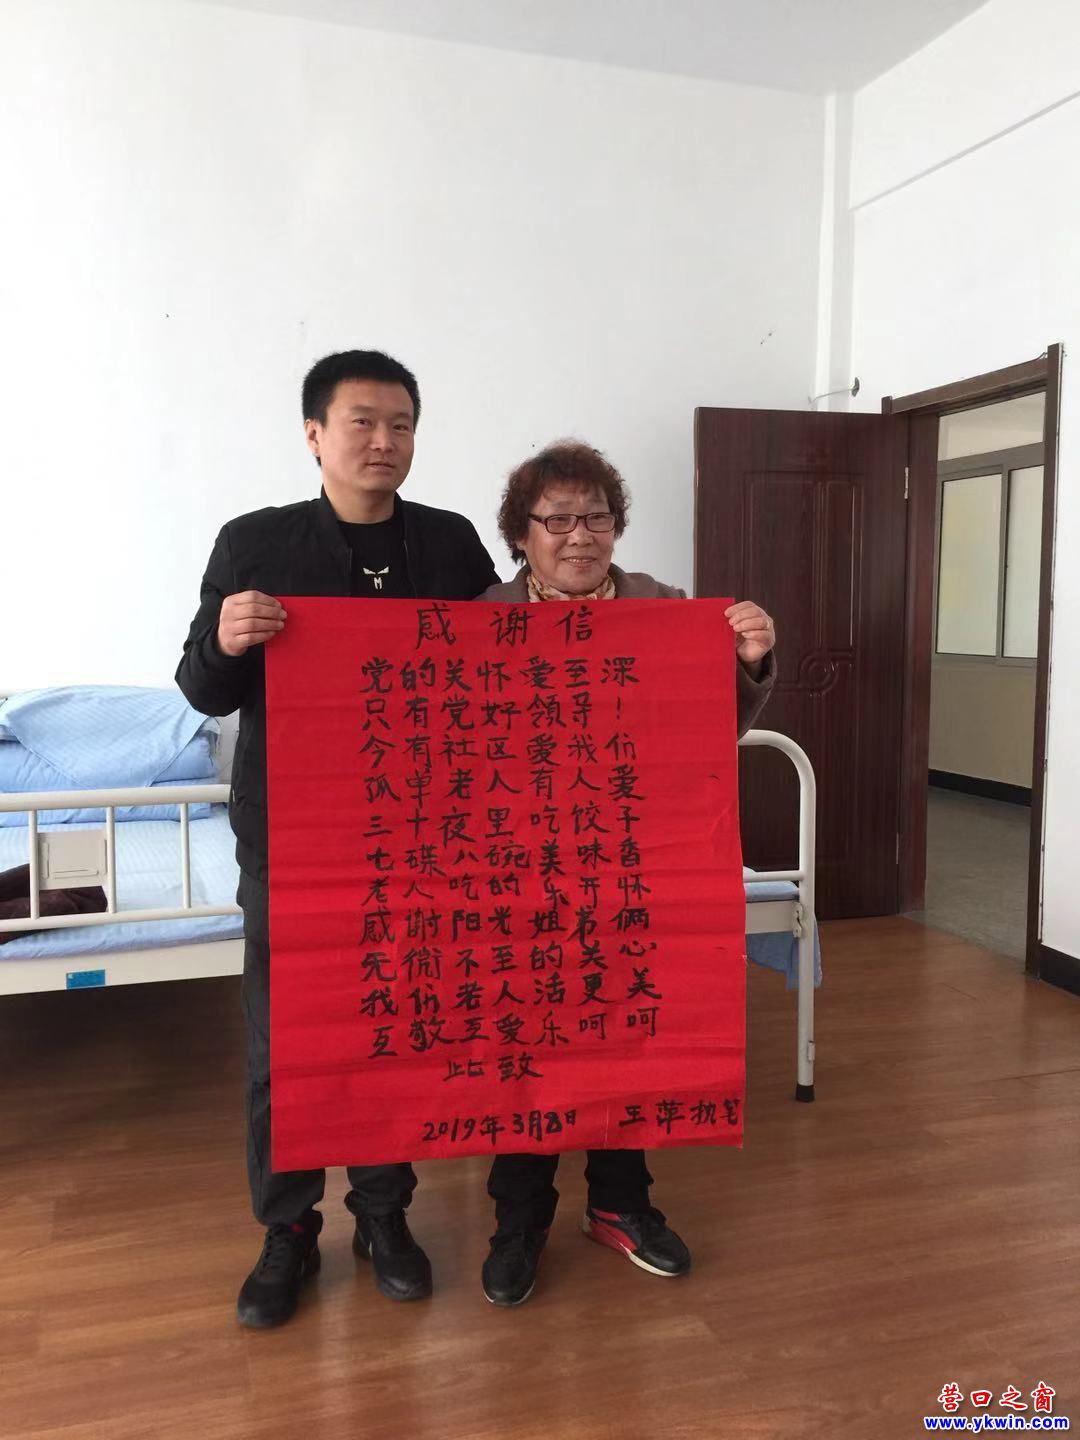 感谢信
党的关怀爱至深
只有党好领导！
今有社区爱我们
孤单老人有人爱
三十夜里吃饺子
七碟八碗美味香
老人吃的乐开怀
感谢阳光姐弟俩
无微不至的关心
我们老人活更美
互敬互爱乐呵呵
此致
2019年3月8日 王萍执笔
M
营口之窗
www.ykwin.com